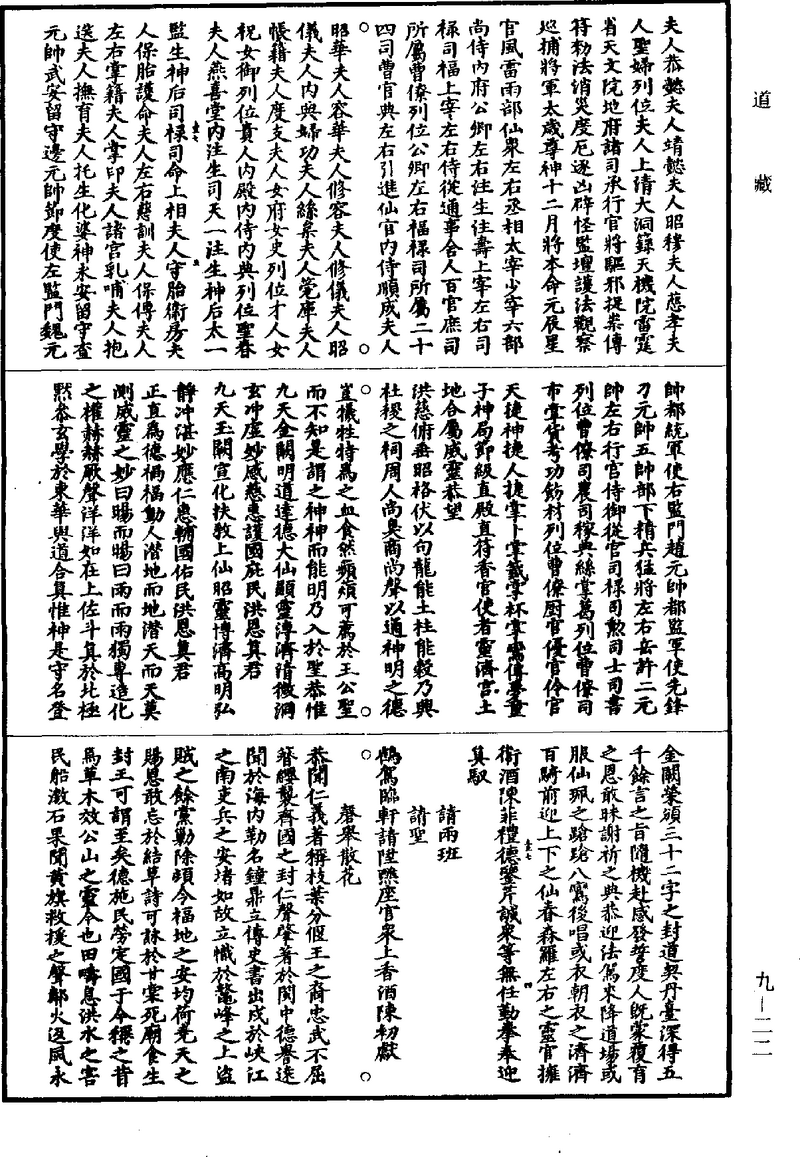 道藏
九—二二
夫人恭懿夫人靖懿夫人昭穆夫人慈孝夫
人聖婦列位夫人上清大洞籙天機院雷霆
省天文院地府諸司承行官將驅邪捉祟傳
符勑法消災度厄逐凶辟怪監壇護法觀察
巡捕將軍太歲尊神十二月將本命元辰星
官風雷雨部仙衆左右丞相太宰少宰六部
尚侍內府公卿左右注生注壽上宰左右司
祿司福上宰左右侍從通事舍人百官庶司
所屬曹僚列位公卿左右福祿司所屬二十
四司曹官典左右引進仙官內侍順成夫人
昭華夫人容華夫人修容夫人修儀夫人昭
儀夫人內典婦功夫人絲枲夫人筦庫夫人
帳籍夫人度支夫人女府女史列位才人女
祝女御列位貴人內殿內侍內典列位聖眷
夫人燕喜堂內注生司天一注生神后太一
監生神后司祿司命上相夫人守胎衛房夫
人保胎護命夫人左右慈訓夫人保傳夫人
左右掌籍夫人掌印夫人諸宮乳哺夫人抱
送夫人撫育夫人托生化婆神永安留守查
元帥武安留守邊元帥節度使左監門魏元
帥都統軍使右監門趙元帥都監軍使先鋒
刀元帥五帥部下精兵猛將左右岳許二元
帥左右行宮侍御從官司祿司勲司士司書
列位曹僚司農司稼典絲掌葛列位曹僚司
布掌貨考功飭材列位曹僚厨官優官伶官
天捷神捷人捷掌卜掌籤掌杯掌鸞傳夢童
子神局節級直殿直符香官使者靈濟宮土
地合屬威靈恭望
洪慈俯垂昭格伏以句龍能土柱能穀乃興
社稷之祠周人尚臭商尚聲以通神明之德
豈犧牲特爲之血食然蘋蘩可薦於王公聖
而不知是謂之神神而能明乃入於聖恭惟
九天金闕明道達德大仙顯靈溥濟清微洞
玄冲虛妙感慈惠護國庇民洪恩真君
九天玉闕宣化扶教上仙昭靈博濟高明弘
靜冲湛妙應仁惠輔國佑民洪恩真君
正直爲德禍福動人潜地而地潜天而天莫
測威靈之妙曰暘而暘曰雨而雨獨專造化
之權赫赫厥聲洋洋如在上佐斗真於北極
黙參玄學於東華與道合真惟神是守名登
金闕榮頒三十二字之封道契丹臺深得五
千餘言之旨隨機赴感發誓度人旣蒙覆育
之恩敢昧謝祈之典恭迎法駕來降道場或
服仙珮之蹌蹌八鸞後唱或衣朝衣之濟濟
百騎前迎上下之仙眷森羅左右之靈官擁
衛酒陳菲禮德鑒芹誠衆等無任勤拳奉迎
真馭
請雨班
請聖
鶴駕臨軒請陞寶座官衆上香酒陳初獻
聲舉散花
恭聞仁義著稱枝葉分偃王之裔忠武不屈
簪纓襲齊國之封仁聲肇著於閩中德譽遠
聞於海内勒名鐘鼎立傳史書出戍於峽江
之南吏兵之安堵如故立幟於鰲峰之上盜
賊之餘黨勦除頓令福地之安均荷堯天之
賜恩敢忘於結草詩可詠於甘棠死廟食生
封王可謂至矣德施民勞定國于今稱之昔
爲草木效公山之靈今也田疇息洪水之害
民船激石果聞黄旗救援之聲鄰火返風永